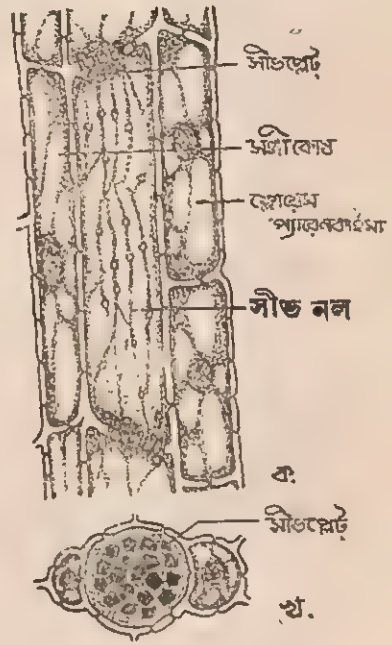 সীভপ্লেট
সঙ্গীকোষ
ফ্লোয়েম
প্যারেনকাইমা
সীভ নল
ক.
সীভপ্লেট
খ.